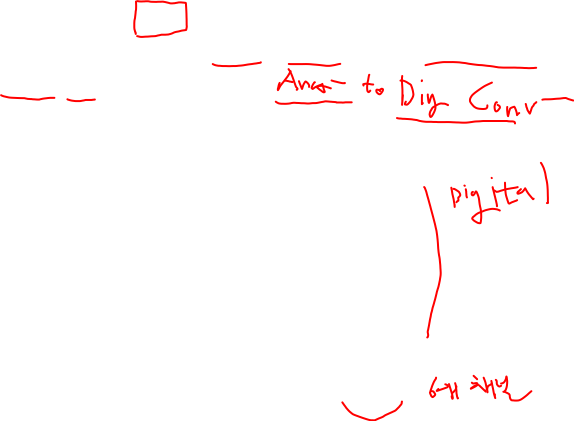 Ana to Dig Conv
Digital
6개 채널